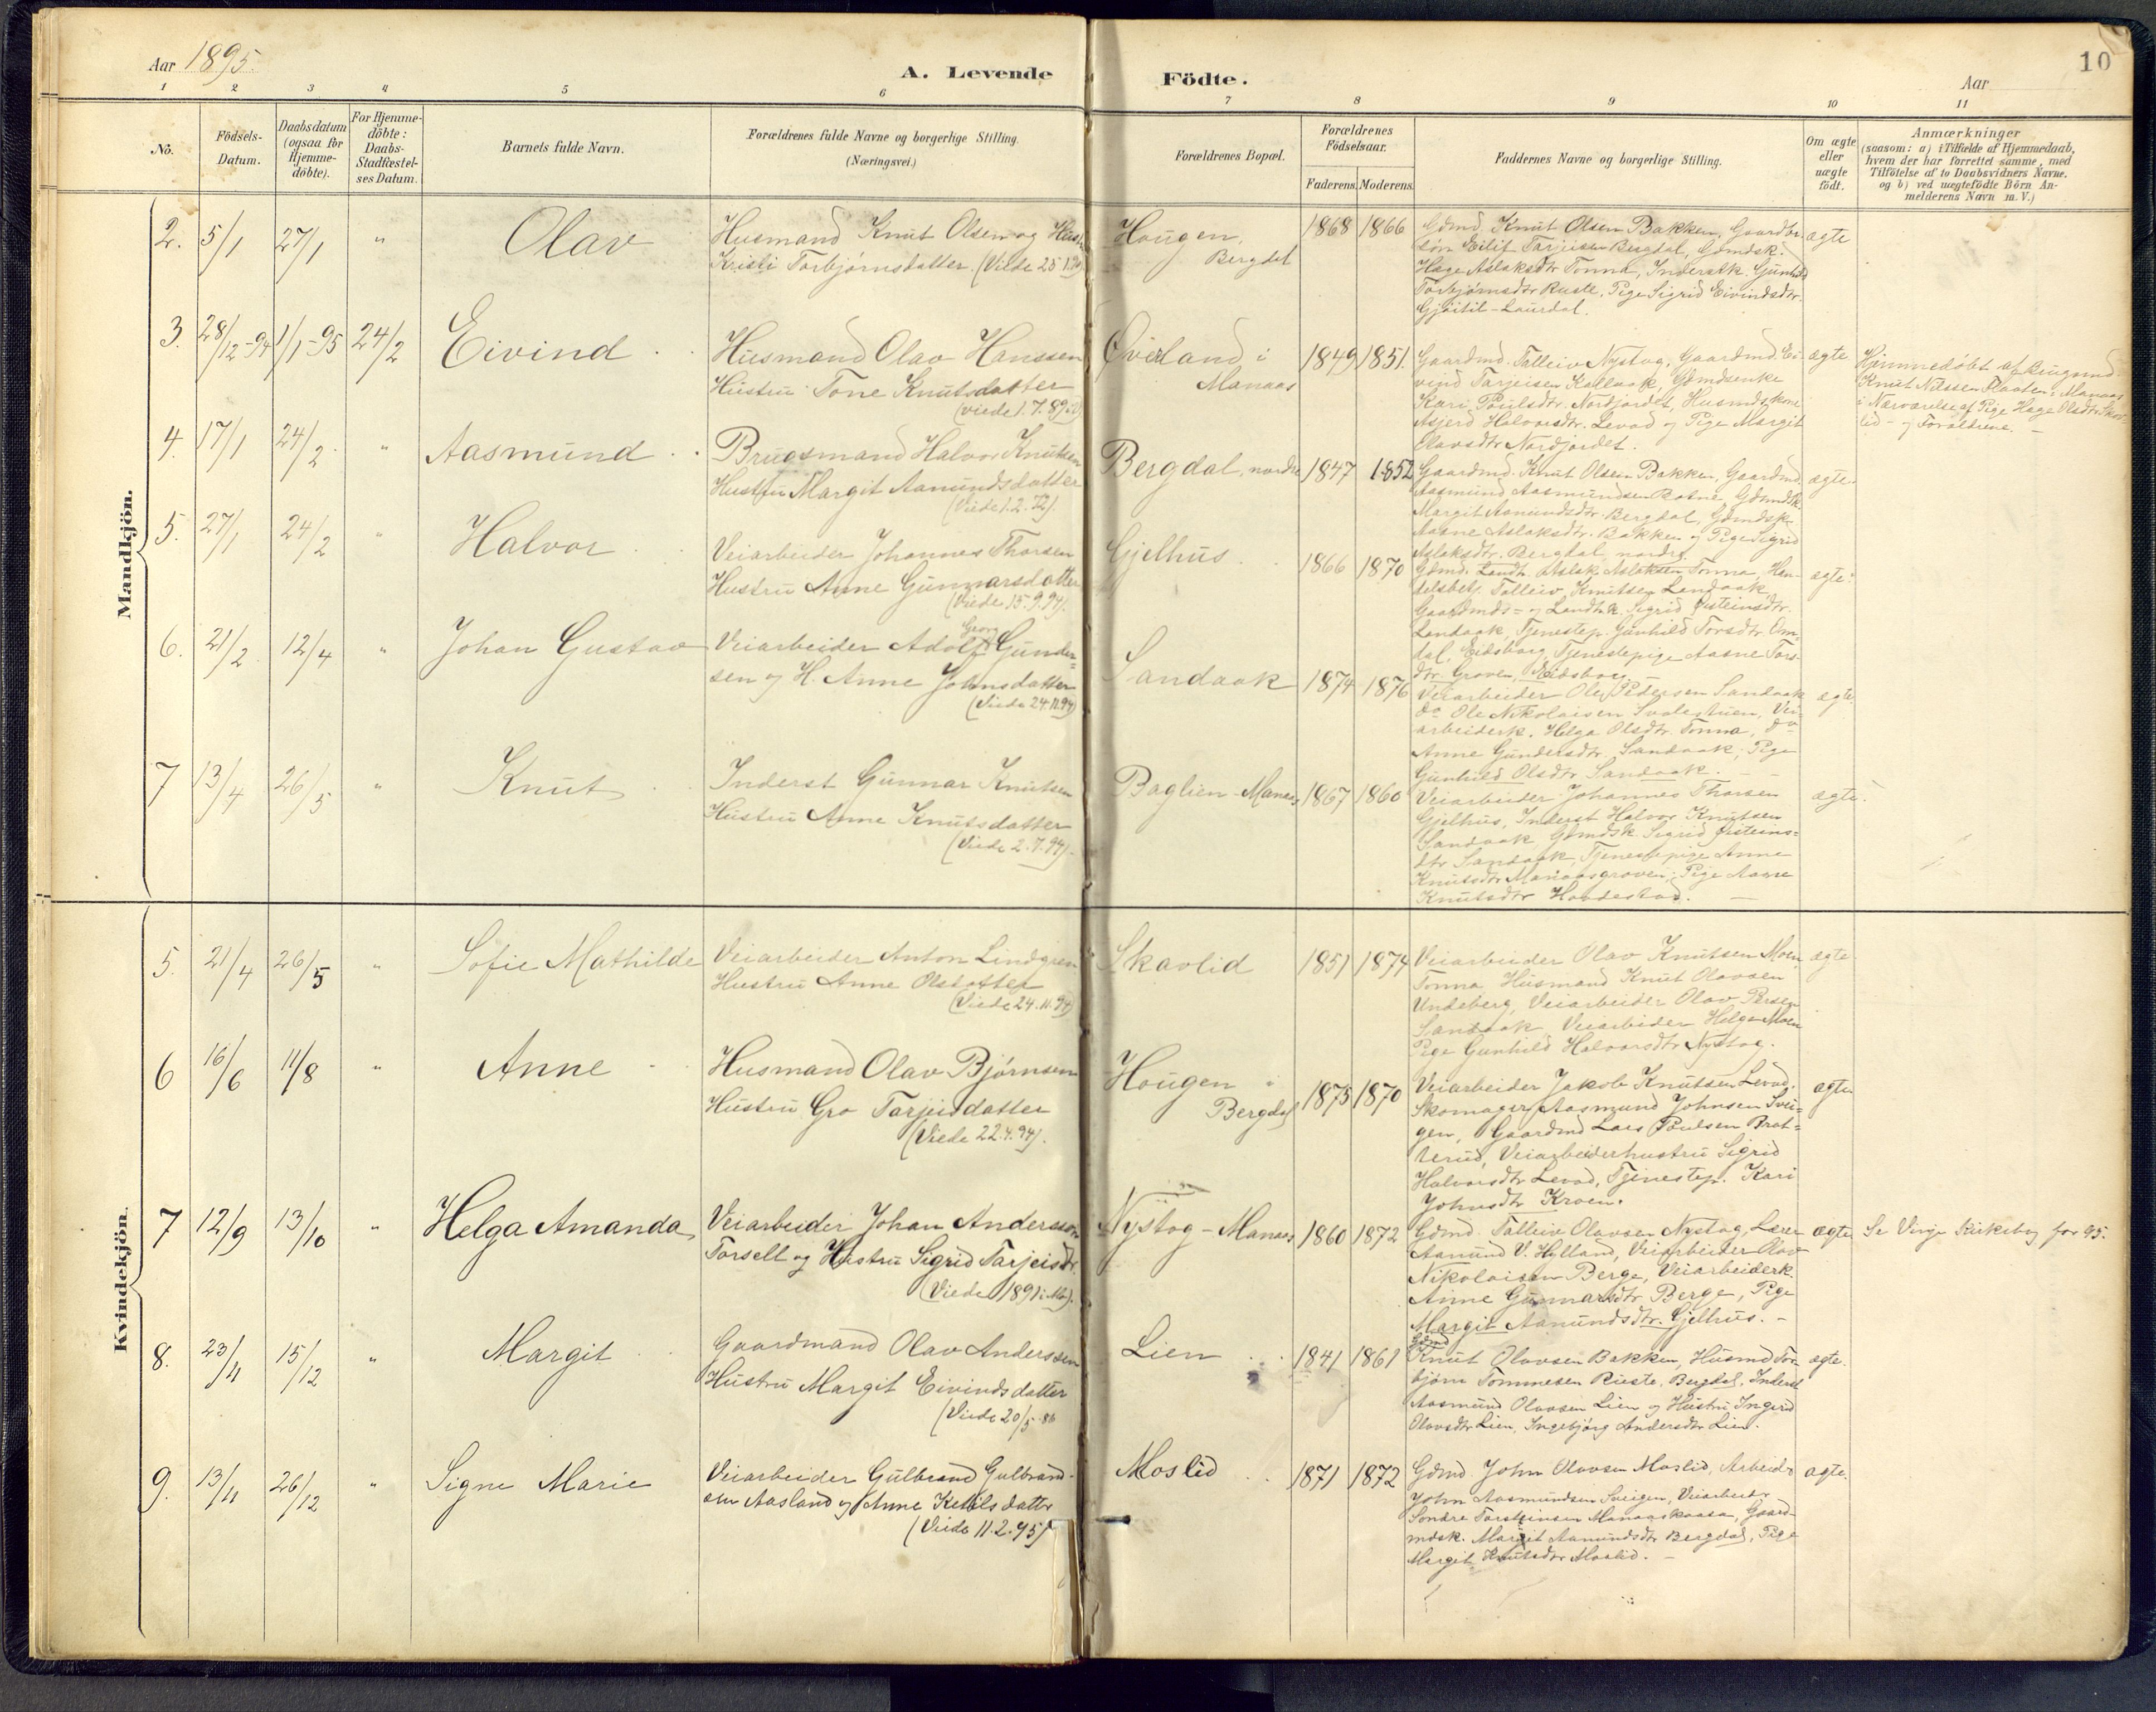 Aar 1895.
A. Levende Födte.
Aar
10
1 2 3 4 5 6 7 8 9 10 11
No.
Födsels-Datum.
Daabsdatum (ogsaa for Hjemme-döbte).
For Hjemme-döbte: Daabs-Stadfæstel-ses Datum.
Barnets fulde Navn.
Forældrenes fulde Navne og borgerlige Stilling.
(Næringsvei.)
Forældrenes Bopæl.
Forældrenes Födselsaar.
Faderens. Moderens.
Faddernes Navne og borgerlige Stilling.
Om ægte eller uægte födt.
Anmærkninger
(saasom: a) i Tilfælde af Hjemmedaab,
hvem der har forrettet samme, med
Tilföielse af to Daabsvidners Navne.
og b) ved uægtefödte Börn An-
melderens Navn m. V.)
Mandkjön.
2. 5/1 27/1 " Olav
Husmand Knut Olsen og Hustr
Kristi Torbjørnsdatter. (Viede
Hougen,
Bergdal
1868 1866
Gdmd Knut Olsen Bakken, Gaardbr.
søn Eilif Tarjeisen Bergdal, Gdmdsk.
Hæge Aslaksdtr Tonna, Inderstk. Gunhild
Torbjørnsdtr Ruste, Pige Sigrid Eivindsdtr.
Laurdal.
ægte
3. 28/12-94 1/1-95 24/2 Eivind
Husmand Olav Hanssen
Hustru Tone Knutsdatter
(viede 1.7.89
Øverland i
Manaas
1849 1851.
Gaardmd. Talleiv Nystog, Gaardmd. Ei-
vind Tarjeisen Kalvaak, Gdmdsenke
Kari Poulsdtr. Nordjordet, Husmdskone
Asjerd Halvorsdtr. Levad og Pige Margit
Olavsdtr Nordjordet.
ægte
Hjemmedöbt af Brugsmd.
Knut Nilssen Flaaten i Manaas
i Nærværelse af Pige Hæge Olsdtr Skav-
lid - og Forældrene. -
4. 17/1 24/2 " Aasmund
Brugsmand Halvor Knutsen
Hustru Margit Aanundsdatter
(Viede 1.2.72).
Bergdal, nordre
1847 1852
Gaardmd. Knut Olsen Bakken, Gaardmd.
Aasmund Aasmundsen Gdmdsk.
Margit Aanundsdtr. Bergdal, Gdmdsk
Aasne Aslaksdtr. Bakken og Pige Sigrid
Aslaksdtr. Bergdal nordre.
ægte.
5. 27/1 24/2 " Halvor
Veiarbeider Johannes Thorsen
Hustru Anne Gunnarsdatter
(Viede 15.9.94).
Gjelhus
1866 1870
Gdmd. Landh. Aslak Aslaksen Tonna, Han-
delsbetj. Talleiv Knutsen Landaak,
Gaardmds- og Landhk. Sigrid Øisteinsdtr.
Landaak, Tjenestep. Gunhild Torsdtr. Om-
dal, Eidsborg, Tjenestepige Aasne Tors-
dtr. Groven, Eidsborg. -
ægte.
6. 21/2 12/4 " Johan Gustav
Veiarbeider Adolf Georg Gunder-
sen og H. Anne Johnsdatter
(Viede 24.11.94)
Sandaak
1874 1876
Veiarbeider Ole Pedersen Sandaak
do Ole Nikolaisen Svalestuen, Vei-
arbeiderk. Helga Olsdtr. Tonna, do
Anne Gundersdtr, Sandaak, Pige
Gunhild Olsdtr Sandaak. -
ægte.
7 13/4 26/5 " Knut
Inderst Gunnar Knutsen
Hustru Anne Knutsdatter
(Viede 2.7.94).
Baglien-Manaas
1867 1860
Veiarbeider Johannes Thorsen
Gjelhus, Inderst Halvor Knutsen
Sandaak, Gdmdsk. Sigrid Øisteins-
dtr Sandaak, Tjenestepige Anne
Knutsdtr Manaasgroven, Pige Aasne
Knutsdtr Hovdestad. -
ægte.
Kvindekjön.
5. 21/4 26/5 " Sofie Mathilde
Veiarbeider Anton Lindgren
Hustru Anne Olsdatter
(Viede 24.11.94)
Skavlid
1851 1874
Veiarbeider Olav Knutsen Moen,
Tonna, Husmand Knut Olavsen
Undeberg, Veiarbeider Olav Persen
Sandaak, Veiarbeider Helge Moen
Pige Gunhild Halvorsdtr Nystog.
ægte
6 16/6 11/8 " Anne
Husmand Olav Bjørnsen
Hustru Gro Tarjeisdatter
(Viede 22.4.94).
Hougen i
Bergdal
1875 1870
Veiarbeider Jakob Knutsen Levad.
Skomager Aasmund Johnsen Svei-
gen, Gaardmd Lars Poulsen Brat-
terud, Veiarbeiderhustru Sigrid
Halvorsdtr Levad, Tjenestep. Kari
Johnsdtr Kroen.
ægte
7 12/9 13/10 " Helga Amanda
Veiarbeider Johan Andersson
Torsell og Hustru Sigrid Tarjeisdtr.
(Viede 1891 i Mo).
Nystog - Manaas
1860 1872
Gdmd. Talleiv Olavsen Nystog, Lærer
Aanund V. Hylland, Veiarbeider Olav
Nikolaisen Berge, Veiarbeiderk.
Anne Gunnarsdtr Berge, Pige
Margit Aanundsdtr. Gjelhus. -
ægte
Se Vinje Kirkebog for 95.
8. 23/11 15/12 " Margit
Gaardmand Olav Anderssen
Hustru Margit Eivindsdatter
(Viede 20/5-86
Lien
1841 1861
Gdmd
Knut Olavsen Bakken, Husmd Tor-
bjørn Tommesen Ruste, Bergdal, Inderst
Aasmund Olavsen Lien og Hustru Ingerid
Olavsdtr Lien, Ingebjørg Andersdtr Lien.
ægte.
9. 13/11 26/12 " Signe Marie
Veiarbeider Gulbrand Gulbrand-
sen Aasland og Anne Ketilsdatter
(Viede 11.2.95)
Moslid
1871 1872
Gdmd John Olavsen Moslid, Arbeider
John Aasmundsen Sveigen, Veiarbeider
Sondre Torsteinsen Manaaskaasa, Gaard-
mdsk. Margit Aanundsdtr Bergdal, Pige
Margit Knutsdtr Moslid. -
ægte.